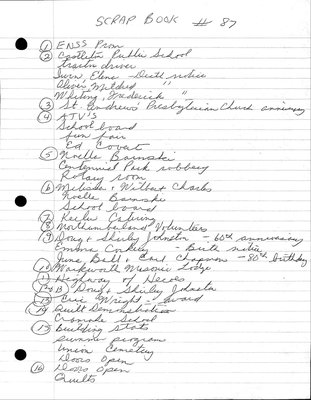 SCRAP BOOK # 87
① ENSS Prom
② Castleton Public School
tractor driver
Turn, Elene - Death notice
Oliver, Mitchel "
Whiting, Frederick "
③ St. Andrew's Presbyterian Church anniversary
④ ATV'S
School board
fun fair
Ed Covert
⑤ Noelle Barnski
Centennial Park robbery
Rotary room
⑥ Melissa + Wilbert Charles
Noelle Barnski
School board
⑦
⑧ Northumberland Volunteers
⑨ Doug + Shirley Johnston - 60th anniversary
Emma - Birth notice
⑩ June Ball + Earl Chapman - 80th birthday
Warkworth Masonic Lodge
⑪ Highway of Heroes
⑫ + B) Doug + Shirley Johnston
⑬ Eric Wright - award
⑭ Quilt Demonstration
Cramahe School
⑮ Building Stats
summer program
Union Cemetery
Doors Open
⑯ Doors Open
Quilts